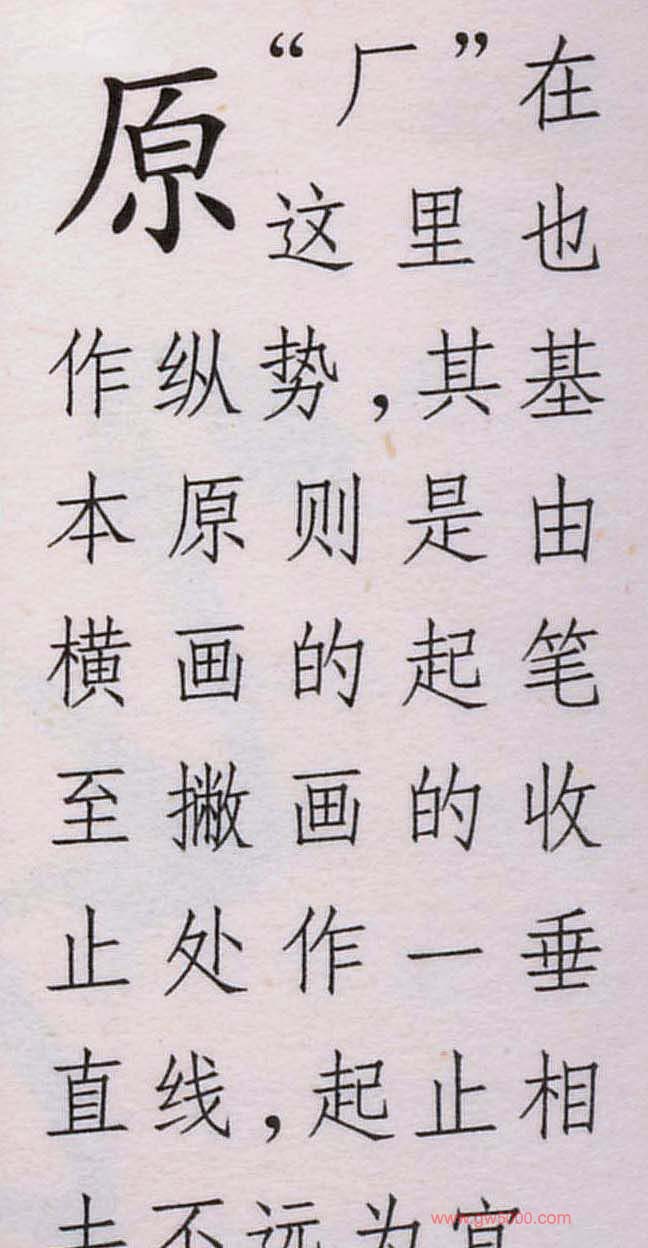 原
“厂”在
这里也
作纵势,其基
本原则是由
横画的起笔
至撇画的收
止处作一垂
直线,起止相
去不远为宜
www.gw5000.com